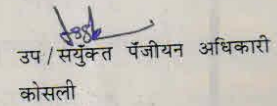 उप/सयुँक्त पँजीयन अधिकारी
कोसली